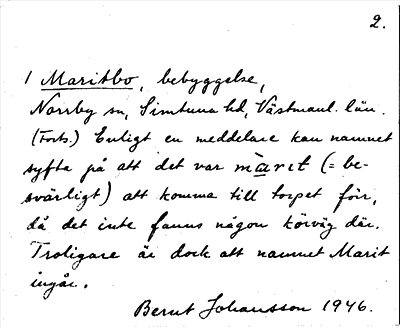 2.
1 Maritbo, bebyggelse,
Norrby sn, Simtuna hd, Västmanl. län.
(Forts.) Enligt en meddelare kan namnet
syfta på att det var màrıt (= be-
svärligt) att komma till torpet förr,
då det inte fanns någon körväg där.
Troligare är dock att namnet Marit
ingår.
Bernt Johansson 1946.